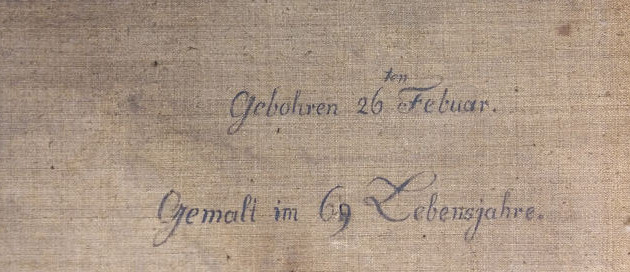 Gebohren 26ten Febuar.
Gemalt im 69 Lebensjahre.